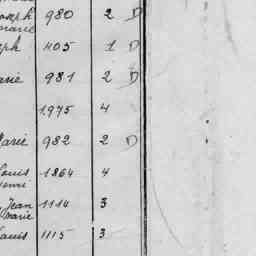 Joseph 980 2 D
Marie
eph 405 1 D
arie 981 2 D
1.975 4
Marie 982 2 D
Louis 1864 4
Henri
, Jean 1114 3
Marie
Louis 1115 3